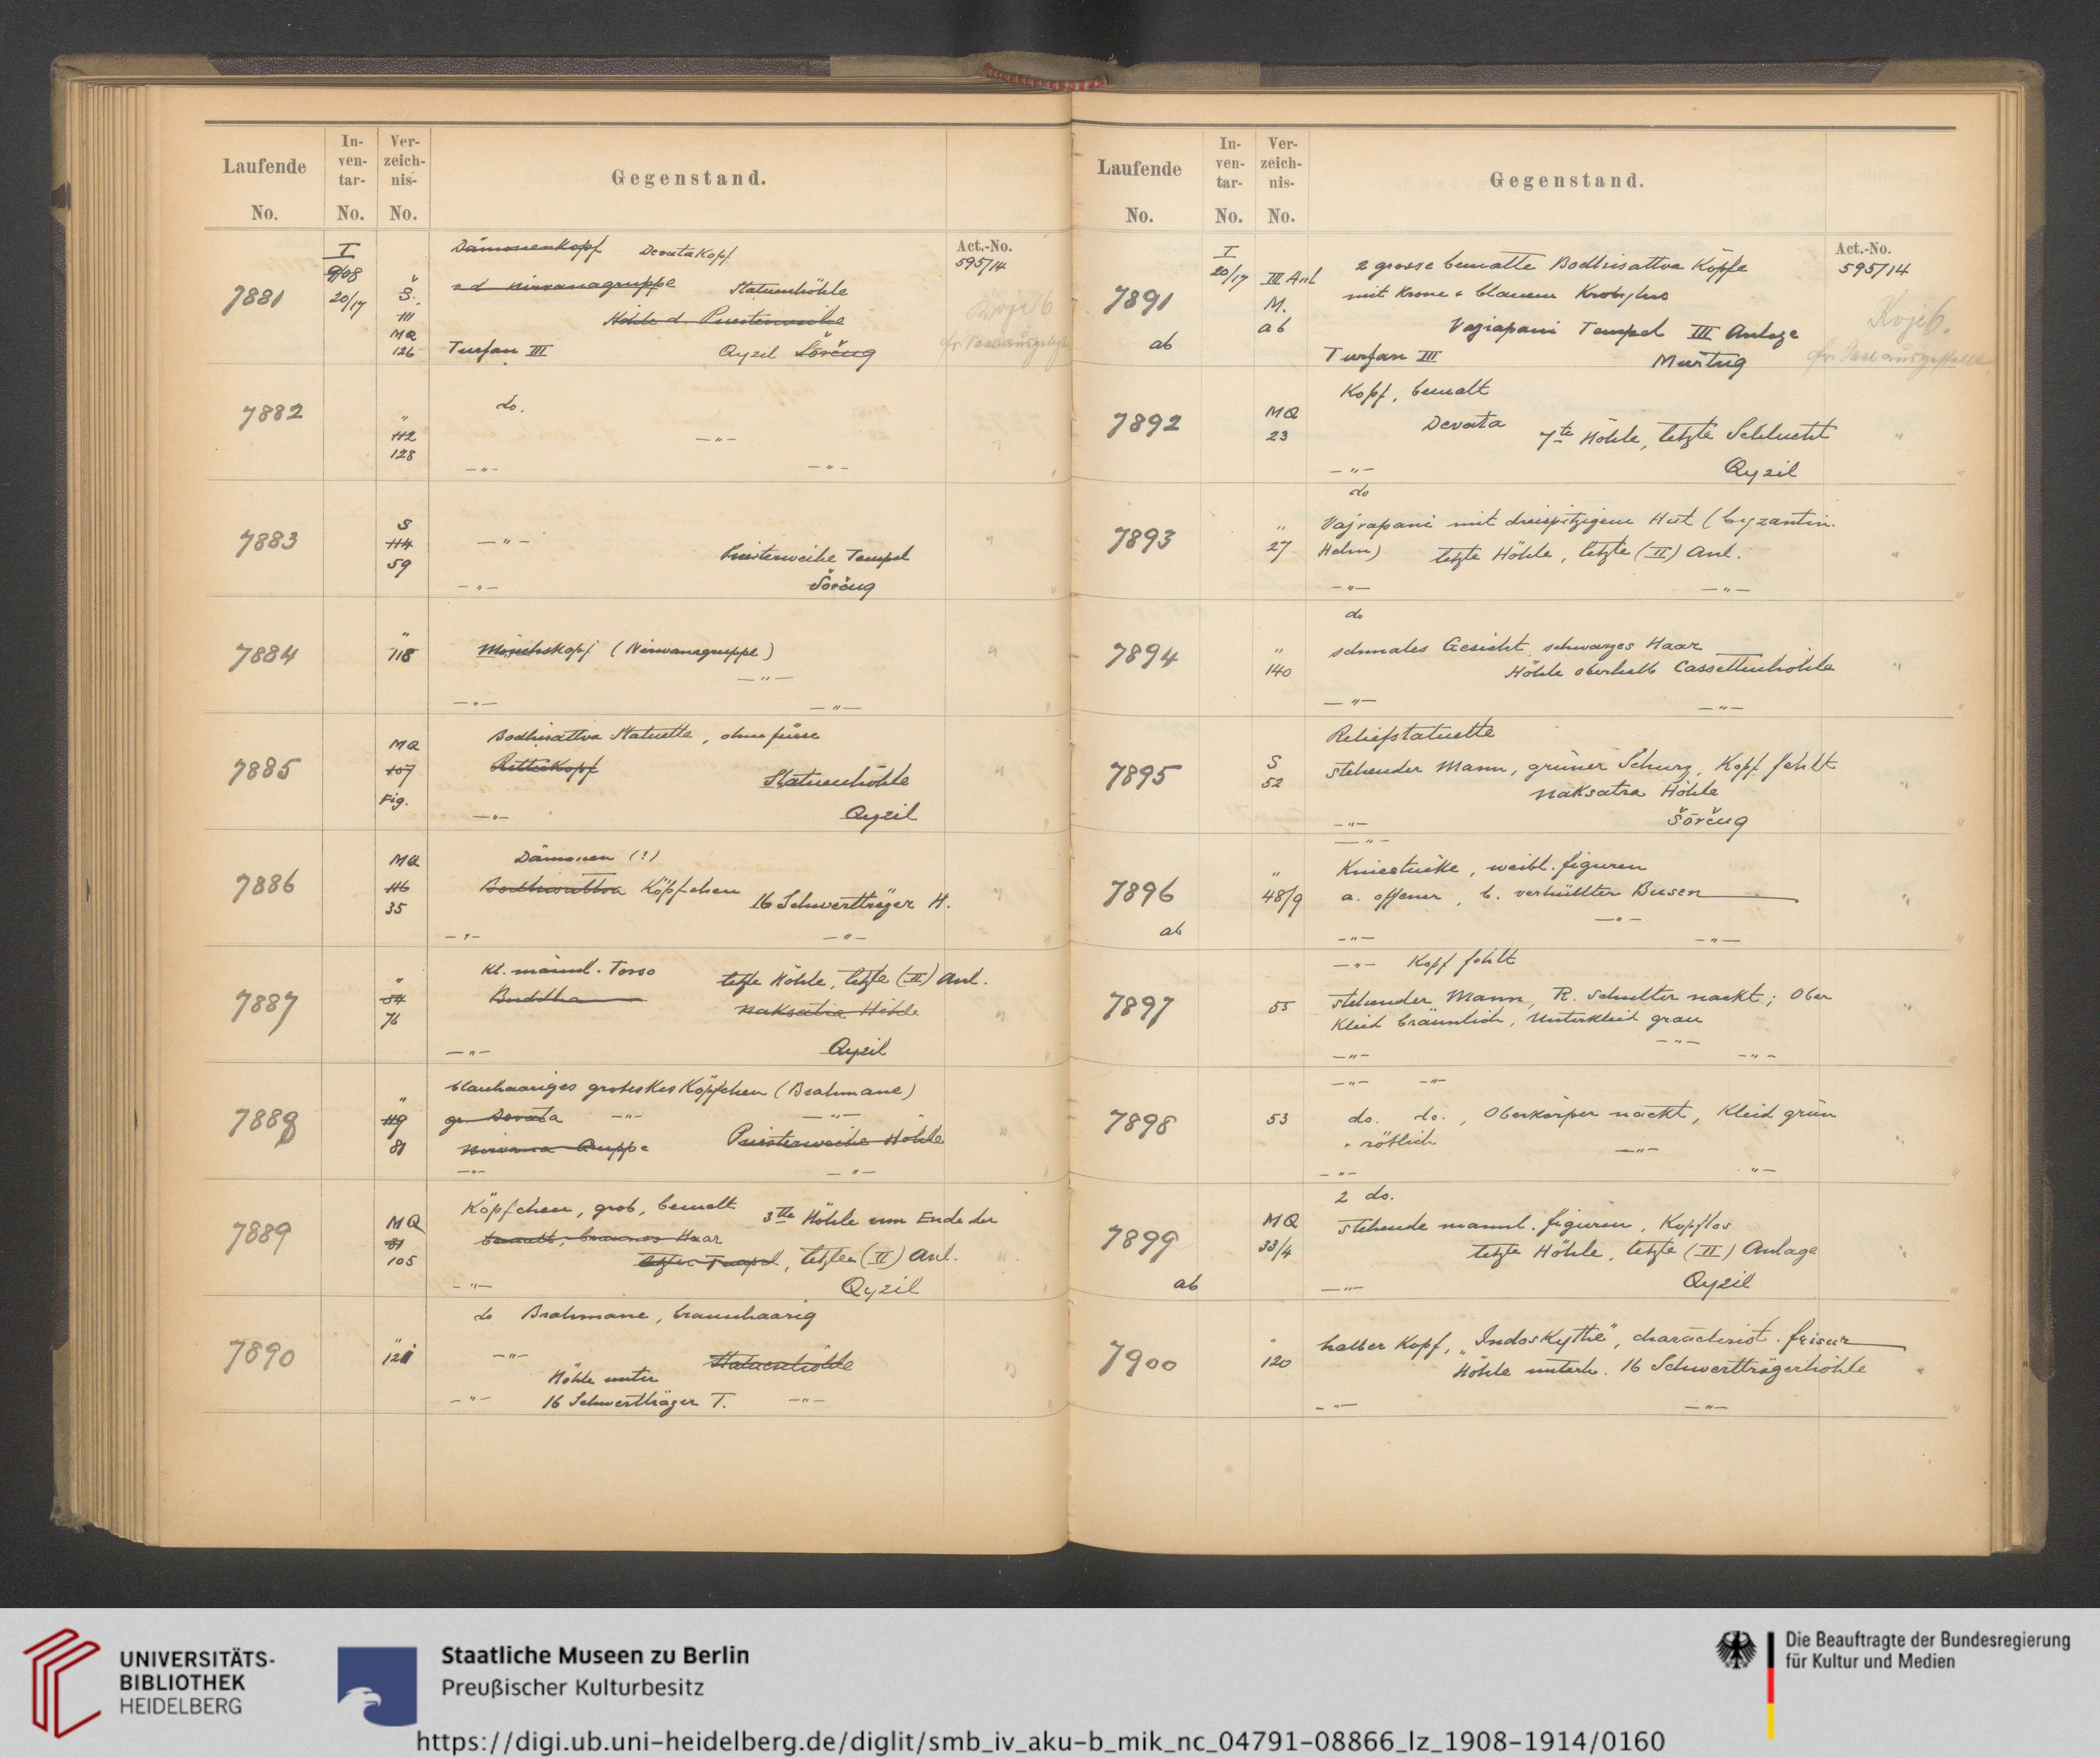 Laufende No.
In-ven-tar-No.
Ver-zeich-nis-No.
Gegenstand.
Act.-No.
595/14
7881
I
9/08
20/17
Š.
111
MQ
126
Dämonenkopf Devatakopf
a d Nirvanagruppe Statuenhöhle
Höhle d. Priesterweihe
Turfan III Qyzil Šorčuq
Koje 6
7882
"
112
128
do.
— " —
— " — — " —
7883
S
114
59
— " —
Priesterweihe Tempel
— " — Šorčuq
7884
"
118
Mönchskopf (Nirvanagruppe)
— " —
— " — — " —
7885
MQ
107
Fig.
Bodhisattva Statuette, ohne füsse
Ritterkopf
Statuenhöhle
— " — Qyzil
7886
MQ
116
35
Dämonen (?)
Bodhisattva Köpfchen
16 Schwertträger H.
— " — — " —
7887
"
54
76
Kl. männl. Torso letzte Höhle, letzte (II) Anl.
Buddha Naksatra Höhle
— " — Qyzil
7888
"
119
81
blauhaariges groteskes Köpfchen (Brahmane)
gr. Devata — " — — " —
Nirvana Gruppe Priesterweihe Höhle
— " — — " —
7889
MQ
81
105
Köpfchen, grob, bemalt 3te Höhle vom Ende der
bemalt, braunes Haar
letzter Tempel, letzten (II) Anl.
— " — Qyzil
7890
"
121
do Brahmane, braunhaarig
— " — Statuenhöhle
Höhle unter
— " — 16 Schwertträger T. — " —
Laufende No.
In-ven-tar-No.
Ver-zeich-nis-No.
Gegenstand.
Act.-No.
595/14
7891
ab
I
20/17
III Anl
M.
ab
2 grosse bemalte Bodhisattva Köpfe
mit Krone + blauem Krobylus
Vajrapani Tempel III Anlage
Turfan III Murtuq
Koje 6.
7892
MQ
23
Kopf, bemalt
Devata 7te Höhle, letzte Schlucht
— " — Qyzil
7893
"
27
do
Vajrapani mit dreispitzigem Hut (byzantin.
Helm) letzte Höhle, letzte (II) Anl.
— " — — " —
7894
"
140
do
schmales Gesicht, schwarzes Haar
Höhle oberhalb Cassettenhöhle
— " — — " —
7895
S
52
Reliefstatuette
stehender Mann, grüner Schurz, Kopf fehlt
Naksatra Höhle
— " — Šorčuq
7896
ab
"
48/9
— " —
Kniestücke, weibl. figuren
a. offener, b. verhüllter Busen
— " —
— " — — " —
7897
55
— " — Kopf fehlt
stehender Mann, R. Schulter nackt; Ober
Kleid bräunlich, Unterkleid grau
— " —
— " — — " —
7898
53
— " — — " —
do. do., Oberkörper nackt, Kleid grün
+ rötlich — " —
— " — " —
7899
ab
MQ
33/4
2 do.
stehende männl. figuren, Kopflos
letzte Höhle, letzte (II) Anlage
— " — Qyzil
7900
"
120
halber Kopf, „Indoskythe", charackterist. frisur
Höhle unterh. 16 Schwertträgerhöhle
— " — — " —
UNIVERSITÄTS-
BIBLIOTHEK
HEIDELBERG
Staatliche Museen zu Berlin
Preußischer Kulturbesitz
Die Beauftragte der Bundesregierung
für Kultur und Medien
https://digi.ub.uni-heidelberg.de/diglit/smb_iv_aku-b_mik_nc_04791-08866_lz_1908-1914/0160